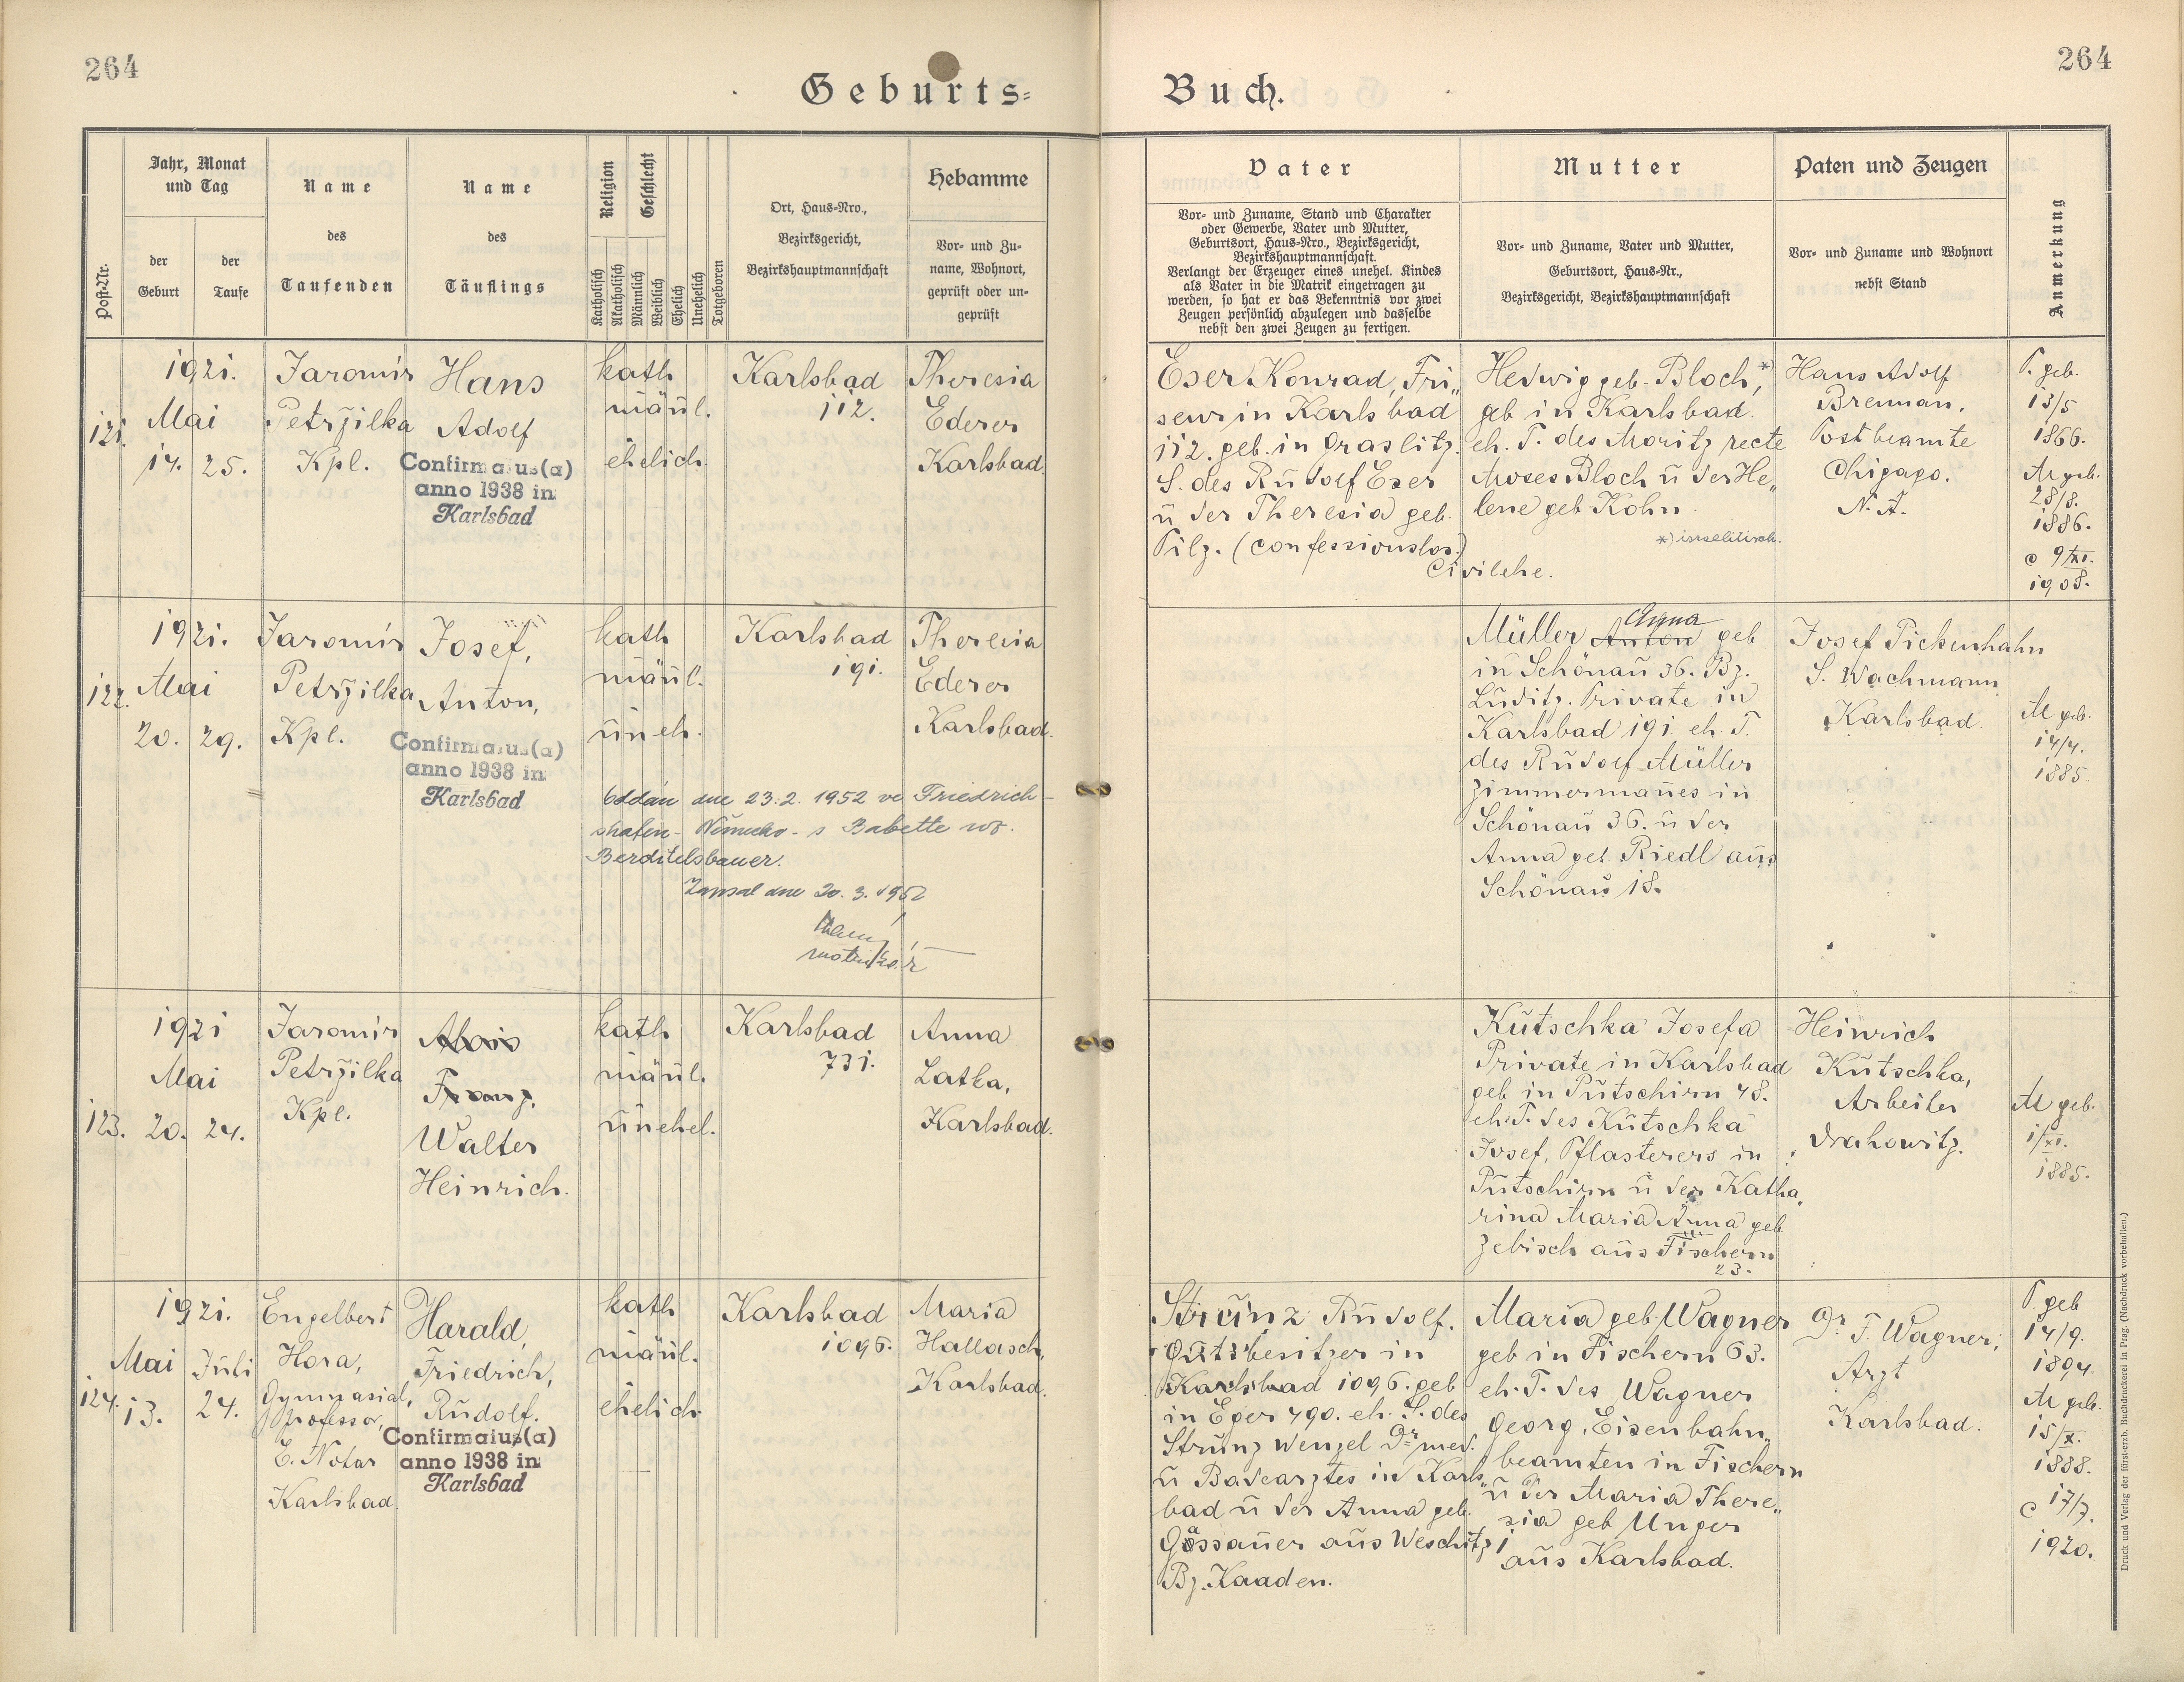 264
264
Geburts=
Buch.
Post-Nr.
Jahr, Monat
und Tag
der
Geburt
der
Taufe
Name
des
Taufenden
Name
des
Täuflings
Religion
Geschlecht
Katholisch
Akatholisch
Männlich
Weiblich
Ehelich
Unehelich
Totgeboren
Ort, Haus-Nro.,
Bezirksgericht,
Bezirkshauptmannschaft
Hebamme
Vor- und Zu-
name, Wohnort,
geprüft oder un-
geprüft
Vater
Vor- und Zuname, Stand und Charakter
oder Gewerbe, Vater und Mutter,
Geburtsort, Haus-Nro., Bezirksgericht,
Bezirkshauptmannschaft.
Verlangt der Erzeuger eines unehel. Kindes
als Vater in die Matrik eingetragen zu
werden, so hat er das Bekenntnis vor zwei
Zeugen persönlich abzulegen und dasselbe
nebst den zwei Zeugen zu fertigen.
Mutter
Vor- und Zuname, Vater und Mutter,
Geburtsort, Haus-Nr.,
Bezirksgericht, Bezirkshauptmannschaft
Paten und Zeugen
Vor- und Zuname und Wohnort
nebst Stand
Anmerkung
121.
1921.
Mai
14. 25.
Jaromír
Petržilka
Kpl.
Hans
Adolf
Confirmatus(a)
anno 1938 in
Karlsbad
kath
mänl.
ehelich.
Karlsbad
112.
Theresia
Ederer
Karlsbad.
Eser Konrad, Fri„
seur in Karlsbad
112. geb. in Graslitz.
S. des Rudolf Eser
u der Theresia geb.
Pilz. (confessionslos.)
Civilehe.
Hedwig geb. Bloch, *)
geb in Karlsbad.
eh. T. des Moritz recte
Moses Bloch u der He„
lene geb Kohn.
*) israelitisch.
Hans Adolf
Brennan,
Postbeamte
Chigago.
N. A.
P. geb.
13/5
1866.
M geb.
28/8.
1886.
c 9/XI.
1908.
122.
1921.
Mai
20. 29.
Jaromír
Petržilka
Kpl.
Josef,
Anton,
Confirmatus(a)
anno 1938 in
Karlsbad
kath
mänl.
uneh.
Karlsbad
191.
Theresia
Ederer
Karlsbad.
Oddán dne 23.2. 1952 ve Friedrich-
shafen - Německo - s Babette roz.
Berditelsbauer.
Zapsal dne 20. 3. 1952
matrikář
Müller Anna Anton geb
in Schönau 36. Bz.
Luditz. Private in
Karlsbad 191. eh. T.
des Rudolf Müller
Zimmermanes in
Schönau 36. u der
Anna geb. Riedl aus
Schönau 18.
Josef Pickenhahn
S. Wachmann
Karlsbad.
M geb.
14/4.
1885.
123.
1921
Mai
20. 24.
Jaromír
Petržilka
Kpl.
Alois
Franz,
Walter
Heinrich.
kath
mänl.
unehel.
Karlsbad
731.
Anna
Latka,
Karlsbad.
Kutschka Josefa
Private in Karlsbad
geb in Putschirn 48.
eh. T. des Kutschka
Josef, Pflasterers in
Putschirn u der Katha„
rina Maria Anna geb
Zebisch aus Fischern
23.
Heinrich
Kutschka,
Arbeiter
Drahowitz.
M geb.
1/XI.
1885.
124.
1921.
Mai Juli
13. 24.
Engelbert
Hora,
Gymnasial„
professor,
E. Notar
Karlsbad.
Harald,
Friedrich,
Rudolf.
Confirmatus(a)
anno 1938 in
Karlsbad
kath
mänl.
ehelich
Karlsbad
1096.
Maria
Hallasch,
Karlsbad.
Strunz Rudolf.
Gutsbesitzer in
Karlsbad 1096. geb
in Eger 490. eh. S. des
Strunz Wenzel Dr med.
u Badearztes in Karls„
bad u der Anna geb.
Gassauer aus Weschitz 1
Bz. Kaaden.
Maria geb. Wagner
geb in Fischern 63.
eh. T. des Wagner
Georg, Eisenbahn„
beamten in Fischern
u der Maria There„
sia geb Unger
aus Karlsbad.
Dr F. Wagner,
Arzt
Karlsbad.
P. geb
14/9.
1894.
M geb.
15/X.
1888.
c 17/7.
1920.
Druck und Verlag der fürst-erzb. Buchdruckerei in Prag. (Nachdruck vorbehalten.)